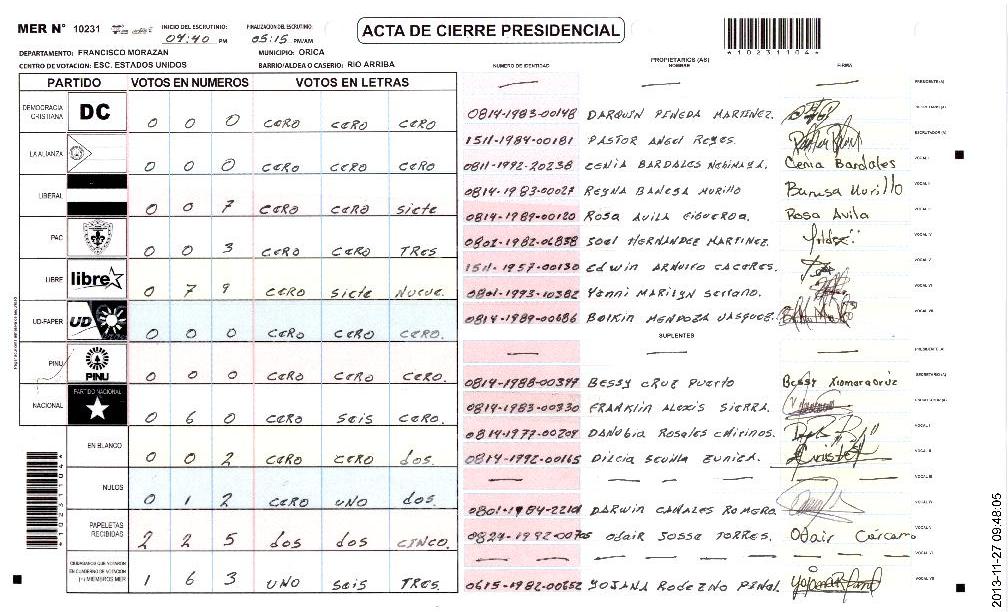 MER N° 10231
INICIO DEL ESCRUTINIO:
04:40 PM
FINALIZACION DEL ESCRUTINIO:
05:15 PM/AM
ACTA DE CIERRE PRESIDENCIAL
*10231104*
DEPARTAMENTO: FRANCISCO MORAZAN
MUNICIPIO: ORICA
CENTRO DE VOTACION: ESC. ESTADOS UNIDOS
BARRIO/ALDEA O CASERIO: RIO ARRIBA
PARTIDO VOTOS EN NUMEROS VOTOS EN LETRAS
DEMOCRACIA CRISTIANA DC 0 0 0 CERO CERO CERO
LA ALIANZA 0 0 0 CERO CERO CERO
LIBERAL 0 0 7 CERO CERO SIETE
PAC 0 0 3 CERO CERO TRES
LIBRE libre 0 7 9 CERO SIETE NUEVE.
UD-FAPER UD 0 0 0 CERO CERO CERO.
PINU PINU 0 0 0 CERO CERO CERO.
NACIONAL PARTIDO NACIONAL 0 6 0 CERO SEIS CERO.
EN BLANCO 0 0 2 CERO CERO DOS.
NULOS 0 1 2 CERO UNO DOS.
PAPELETAS RECIBIDAS 2 2 5 DOS DOS CINCO.
CIUDADANOS QUE VOTARON EN CUADERNO DE VOTACION (+) MIEMBROS MER 1 6 3 UNO SEIS TRES.
*10231104*
PROPIETARIOS (AS)
NUMERO DE IDENTIDAD NOMBRE FIRMA
— — — PRESIDENTE (A)
0814-1983-00148 DARQUIN PINEDA MARTINEZ. SECRETARIO (A)
1511-1984-00181 PASTOR ANGEL REYES. ESCRUTADOR (A)
0811-1992-20238 CENIA BARDALES Cenia Bardales VOCAL I
0814-1983-00027 REYNA BANESA MURILLO Banesa Murillo VOCAL II
0814-1989-00120 ROSA AVILA FIGUEROA. Rosa Avila VOCAL III
0801-1982-06838 JOEL HERNANDEZ MARTINEZ. VOCAL IV
1511-1957-00130 EDWIN ARNULFO CACERES. VOCAL V
0801-1993-10382 YENNI MARILYN SERRANO. VOCAL VI
0814-1989-00686 BOLKIN MENDOZA VASQUEZ. VOCAL VII
SUPLENTES
— — — PRESIDENTE (A)
0814-1988-00397 BESSY CRUZ PUERTO Bessy Xiomara cruz SECRETARIO (A)
0814-1983-00330 FRANKLIN ALEXIS SIERRA. ESCRUTADOR (A)
0814-1977-00209 DANUBIA ROSALES CHIRINOS. VOCAL I
0814-1992-00165 DILCIA SEVILLA ZUNIGA. VOCAL II
— — — VOCAL III
DARWIN CANALES ROMERO. VOCAL IV
ODAIR JOSSE TORRES. Odair Cárcamo VOCAL V
— — — VOCAL VI
0615-1982-00652 YOJANA RODEZNO VOCAL VII
2013-11-27 09:48:05